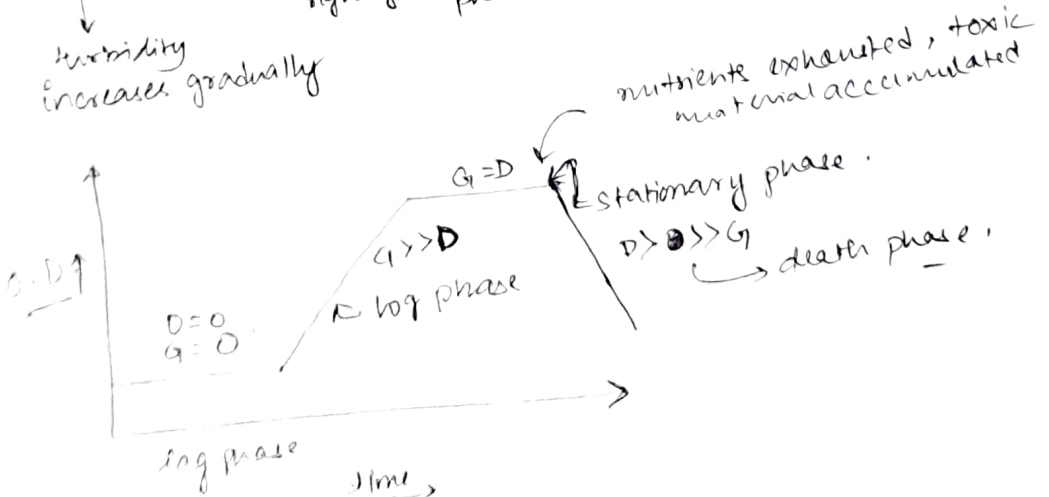 turbidity
increases gradually
nutrients exhausted, toxic
material accumulated
G = D
stationary phase.
G >> D
D > >> G
death phase.
log phase
O.D
D = 0
G = 0
lag phase
time